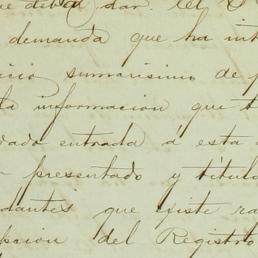 dar. del
demanda que ha int
icio sumarisimo de p
la informacion que t
dado entrada á esta
presentado y titulo
dantes que existe ra
pcion del Registro